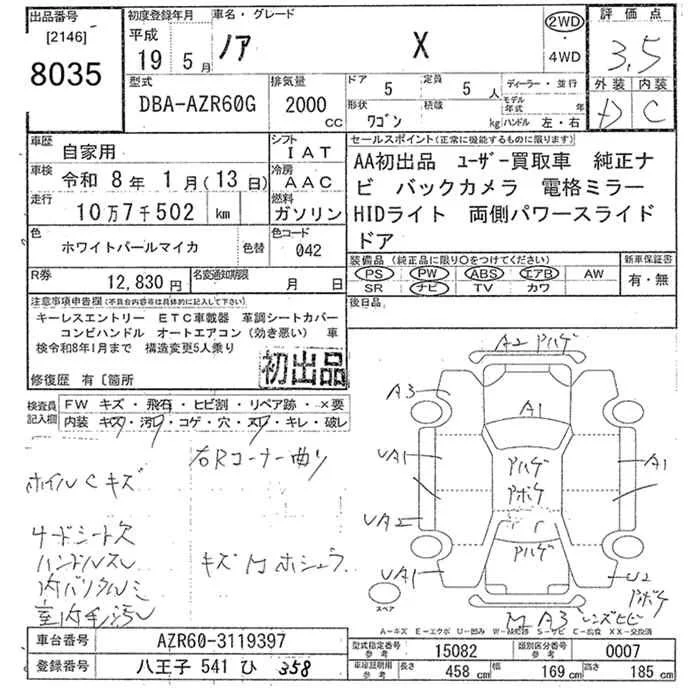 出品番号
[2146]
8035
初度登録年月
平成
19 5月
車名・グレード
ノア X
2WD
・
4WD
評価点
3.5
外装 内装
D C
型式
DBA-AZR60G
排気量
2000 CC
ドア 5
定員 5人
形状 ワゴン
積載 kg
ディーラー・並行
モデル年式 年
ハンドル 左・右
車歴 自家用
シフト IAT
車検 令和 8年 1月(13日)
冷房 AAC
走行 10万7千502 km
燃料 ガソリン
色 ホワイトパールマイカ
色替
カラーコード 042
R券 12,830円
名変通知期限 月 日
セールスポイント(正常に機能するものに限ります)
AA初出品 ユーザー買取車 純正ナ
ビ バックカメラ 電格ミラー
HIDライト 両側パワースライド
ドア
装備品(純正品に限り○をつけてください)
PS PW ABS エアB AW
SR ナビ TV カワ
新車保証書
有・無
後日品
注意事項申告欄(不具合内容等は具体的に記入して下さい)
キーレスエントリー ETC車載器 革調シートカバー
コンビハンドル オートエアコン(効き悪い) 車
検令和8年1月まで 構造変更5人乗り
初出品
修復歴 有〔箇所
検査員記入欄
FW キズ・飛石・ヒビ割・リペア跡・×要
内装 キズ・汚れ・コゲ・穴・スレ・キレ・破レ
ホイルCキズ
右Rコーナー曲り
サードシート欠
ハンドルスレ
内バリクルミ
室内キズ汚レ
キズ
A2 アハゲ
A3
A1
UA1
アハゲ
アボケ
A1
UA2
アハゲ
UA1
U2
アボケ
A3 レンズヒビ
スペア
A−キズ E−エクボ U−凹み W−補修跡 S−サビ C−腐食 XX−交換済
車台番号 AZR60-3119397
登録番号 八王子 541 ひ 358
型式指定番号 参考 15082
類別区分番号 参考 0007
車庫証明用 参考 長さ 458 cm 幅 169 cm 高さ 185 cm